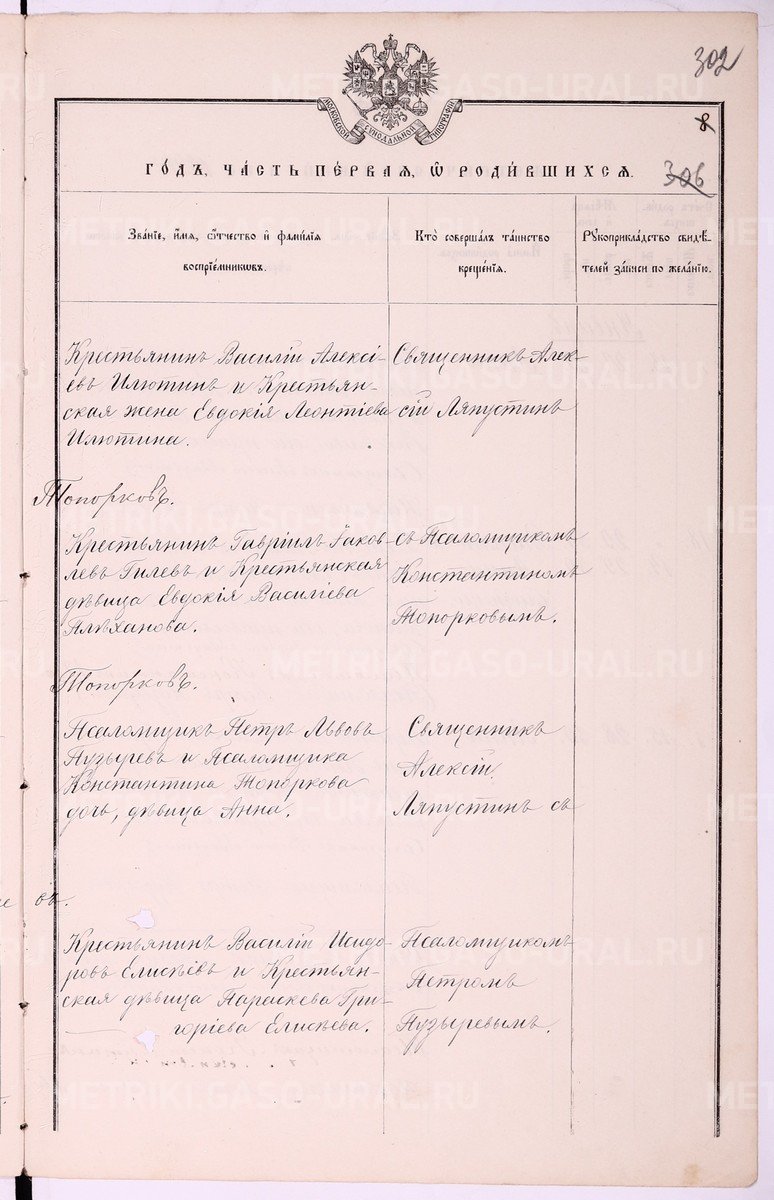 302
МОСКОВСКОЙ СѴНОДАЛЬНОЙ ТИПОГРАФІИ
8
ГОДЪ, ЧАСТЬ ПЕРВАЯ, Ѡ РОДИВШИХСЯ.
306
Званіе, имя, отчество и фамилія
воспріемниковъ.
Кто совершалъ таинство
крещенія.
Рукоприкладство свидѣ-
телей записи по желанію.
Крестьянинъ Василій Алексі-
евъ Илютинъ и Крестьян-
ская жена Евдокія Леонтіева
Илютина.
Священникъ Алек-
сій Ляпустинъ
Топорковъ.
Крестьянинъ Гавріилъ Іаков-
левъ Гилевъ и Крестьянская
дѣвица Евдокія Василіева
Алѣханова.
съ Псаломщикомъ
Константиномъ
Топорковымъ.
Топорковъ.
Псаломщикъ Петръ Львовъ
Пузыревъ и Псаломщика
Константина Топоркова
дочь, дѣвица Анна.
Священникъ
Алексій
Ляпустинъ съ
въ.
Крестьянинъ Василій Исидо-
ровъ Елисѣевъ и Крестьян-
ская дѣвица Параскева Гри-
горіева Елисѣева.
Псаломщикомъ
Петромъ
Пузыревымъ.
METRIKI.GASO-URAL.RU